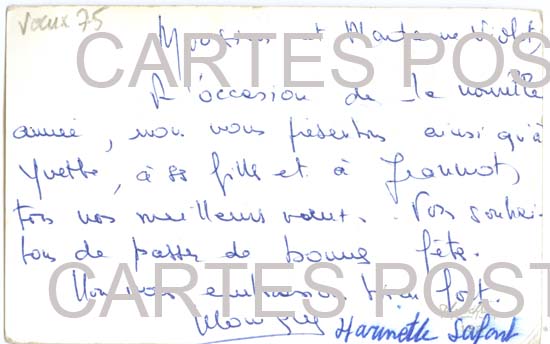 Voeux 75
Monsieur et Madame Violet,
A l'occasion de la nouvelle
année, nous vous présentons ainsi qu'à
Yvette, à sa fille et à Jeannot,
tous nos meilleurs voeux. Vous souhai-
tons de passer de bonnes fête.
Nous vous embrassons bien fort.
Harinette
CARTES POST
CARTES POST